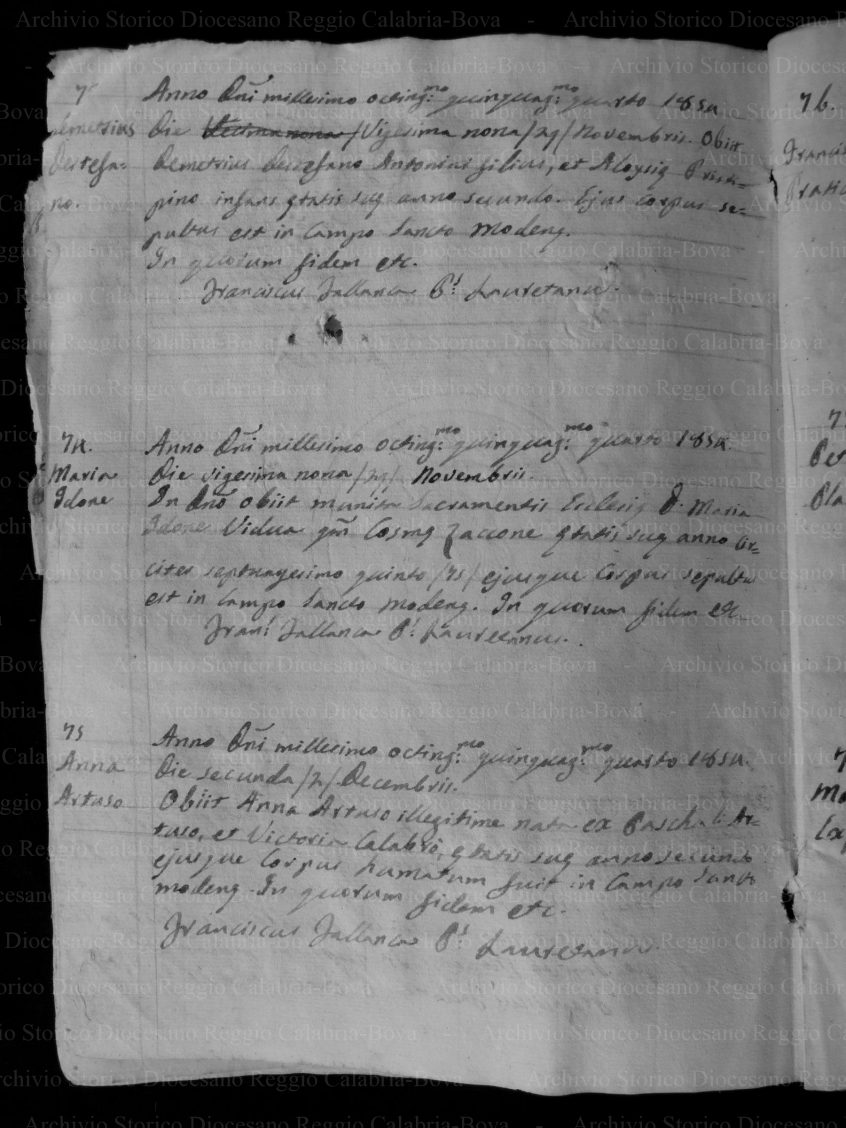 7
Demetrius
Destefa-
no.
Anno Dñi millesimo octing:mo quinquag:mo quarto 1854
Die Decima nona /Vigesima nona/29/ Novembris. Obiit
Demetrius Destefano Antonini filius, et Aloysię
pino infans ętatis suę anno secundo. Ejus corpus se-
pultus est in Campo Sancto Modenę.
In quorum fidem etc.
Franciscus Fallanca P.s Lauretanus.
74.
Maria
Idone
Anno Dñi millesimo octing:mo quinquag:mo quarto 1854.
Die vigesima nona /29/ Novembris.
In Dño obiit munita Sacramentis Ecclesię D. Maria
Idone Vidua qm Cosmę Zaccone ętatis suę anno cir-
citer septuagesimo quinto /75/ ejusque Corpus sepultu
est in Campo Sancto Modenę. In quorum fidem etc.
Fran: Fallanca P. Lauretanus.
75
Anna
Artuso
Anno Dñi millesimo octing:mo quinquag:mo quarto 1854.
Die secunda /2/ Decembris.
Obiit Anna Artuso illegitime nata ex Paschali Ar-
tuso, et Victoria Calabrò, ętatis suę anno secundo
ejusque Corpus humatum fuit in Campo Sancto
modenę. In quorum fidem etc.
Franciscus Fallanca P.s Lauretanus.
76.
Francis
Pratic
7
Pet
Pla
7
Ma
Archivio Storico Diocesano Reggio Calabria-Bova